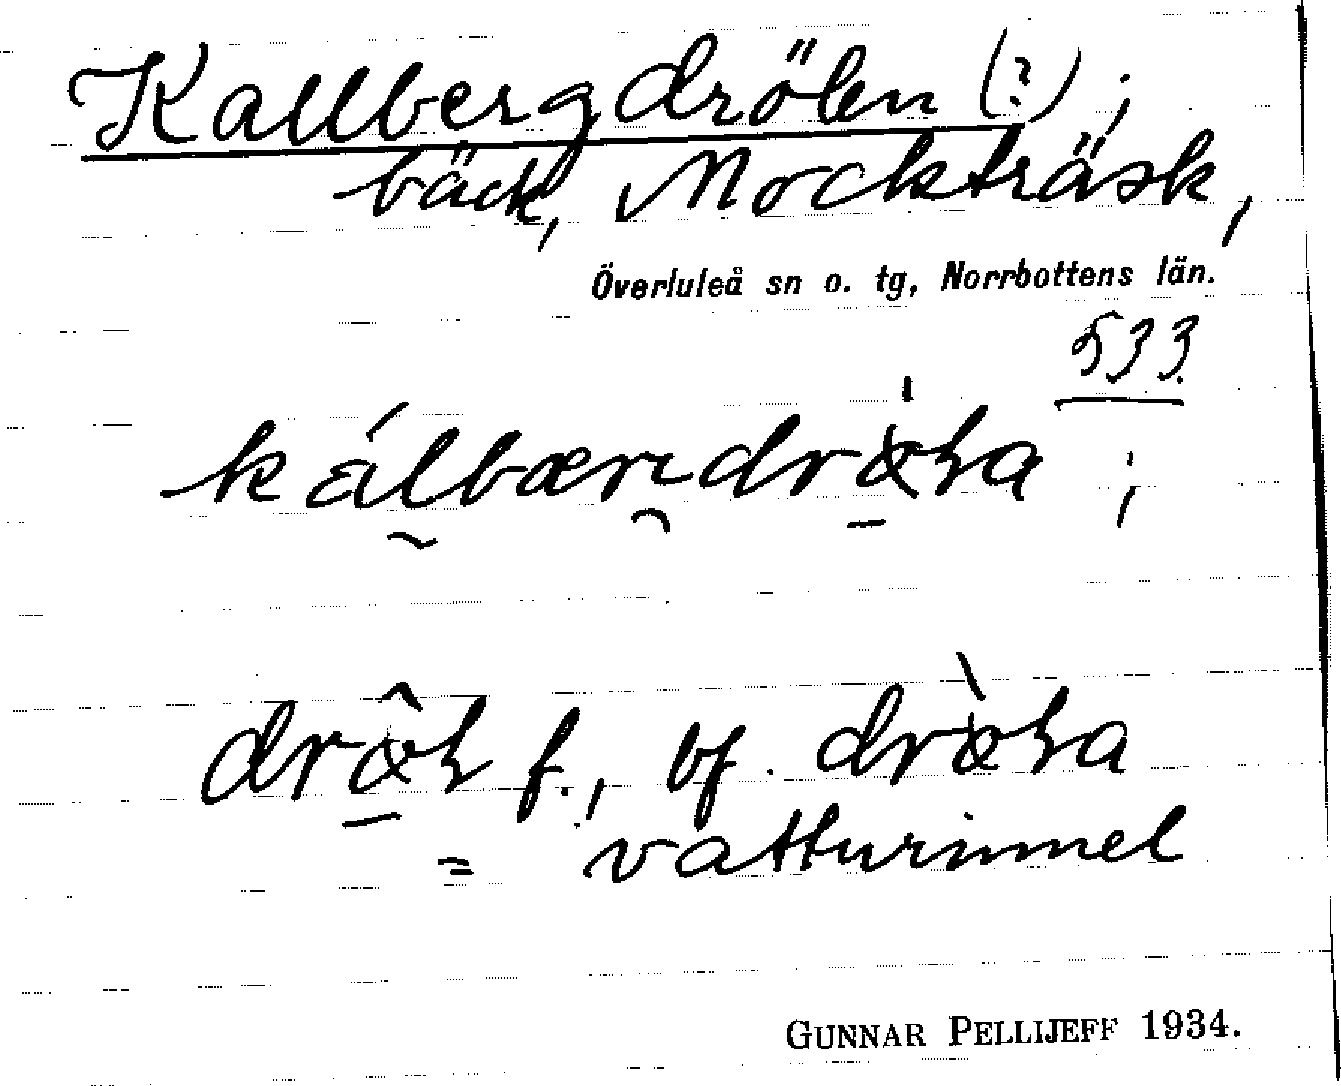 Kallbergdrölen (?);
bäck, Mockträsk,
Överluleå sn o. tg, Norrbottens län.
533
f., bf.
= vatturimmel
GUNNAR PELLIJEFF 1934.